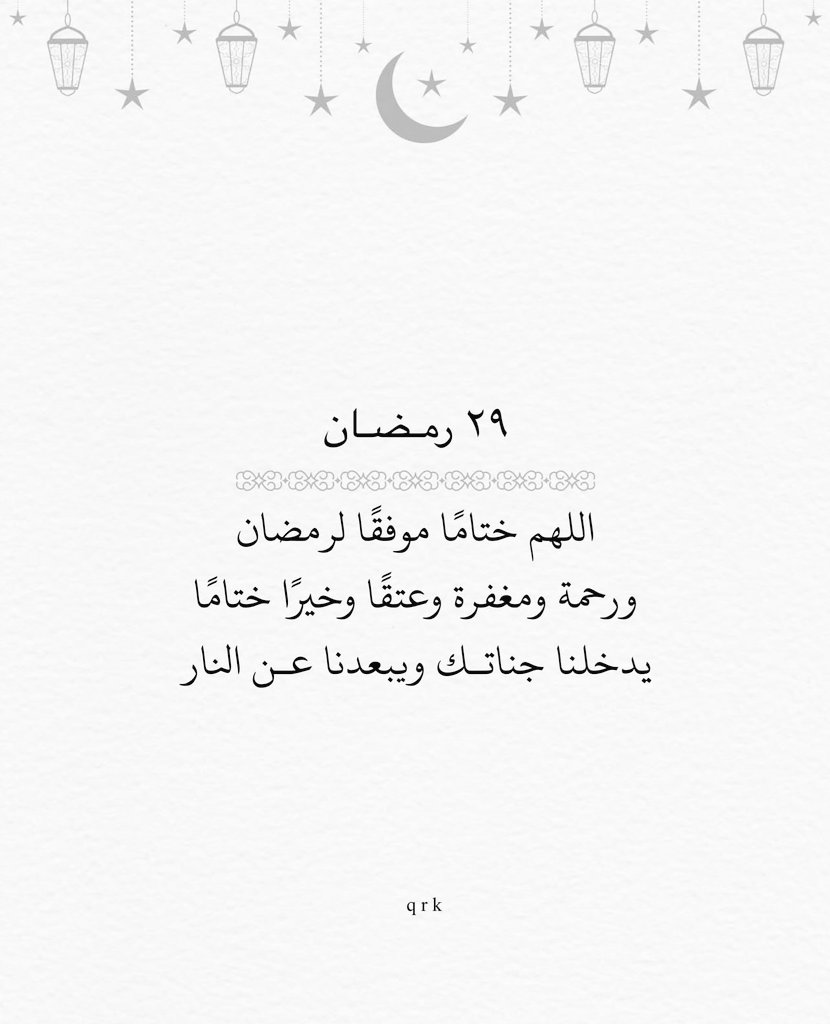 ٢٩ رمـضـان
اللهم ختامًا موفقًا لرمضان
ورحمة ومغفرة وعتقًا وخيرًا ختامًا
يدخلنا جناتـك ويبعدنا عـن النار
q r k